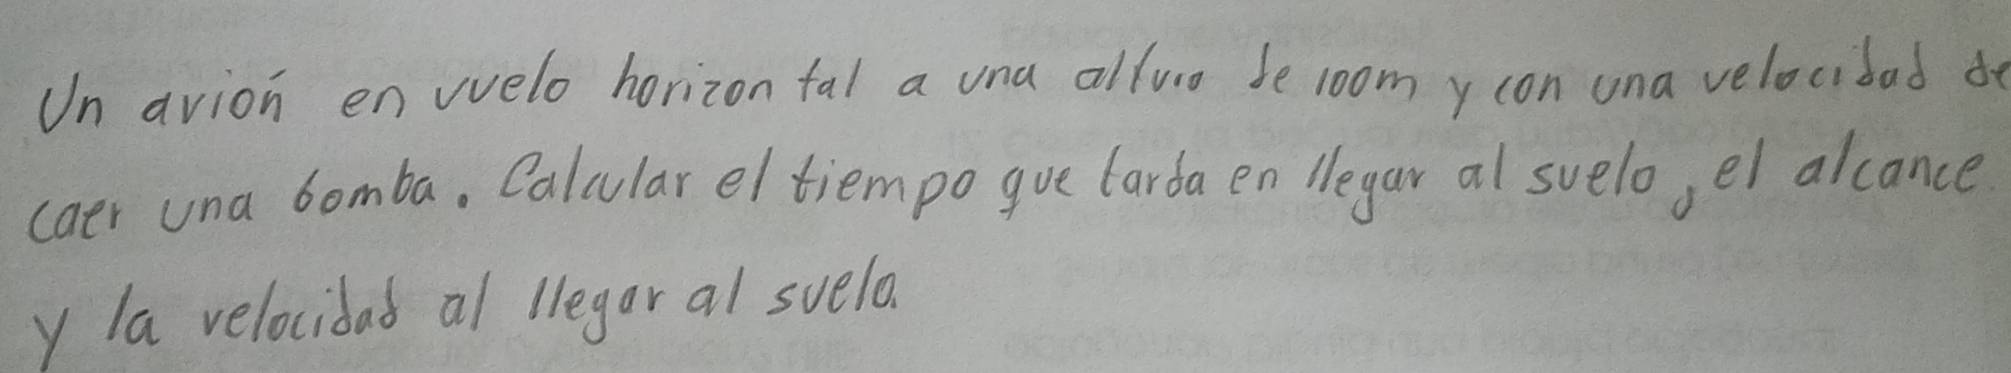 Un avión en vuelo horizontal a una altura de 100m y con una velocidad de
caer una bomba. Calcular el tiempo que tarda en llegar al suelo, el alcance
y la velocidad al llegar al suelo.